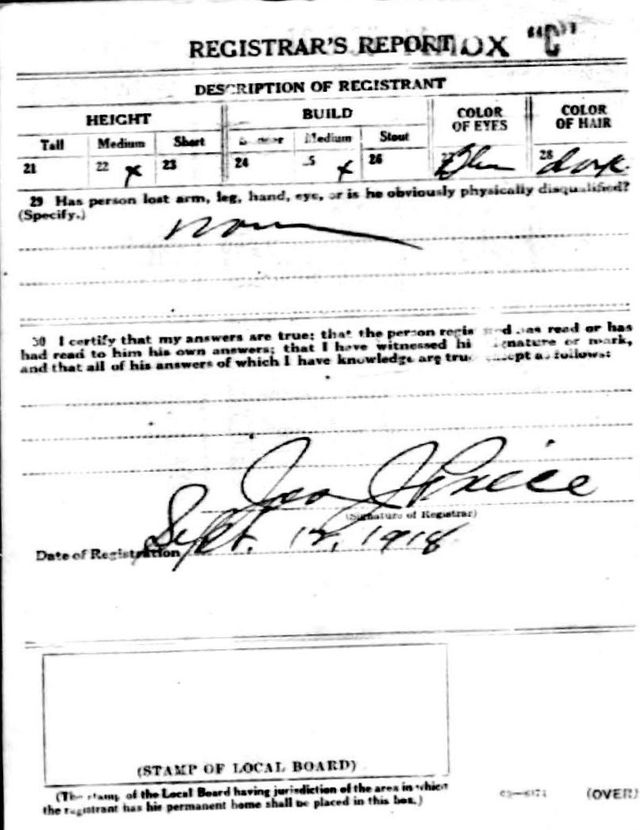 REGISTRAR'S REPORT BOX "C"
DESCRIPTION OF REGISTRANT
HEIGHT BUILD COLOR OF EYES COLOR OF HAIR
Tall Medium Short Medium Stout
21 22 x 23 24 25 x 26 Blu 28 dark
29 Has person lost arm, leg, hand, eye, or is he obviously physically disqualified?
(Specify.)
none
30 I certify that my answers are true; that the person registered has read or has
had read to him his own answers; that I have witnessed his signature or mark,
and that all of his answers of which I have knowledge are true, except as follows:
Price
(Signature of Registrar)
Date of Registration Sept. 12, 1918
(STAMP OF LOCAL BOARD)
(The stamp of the Local Board having jurisdiction of the area in which
the registrant has his permanent home shall be placed in this box.)
(OVER)